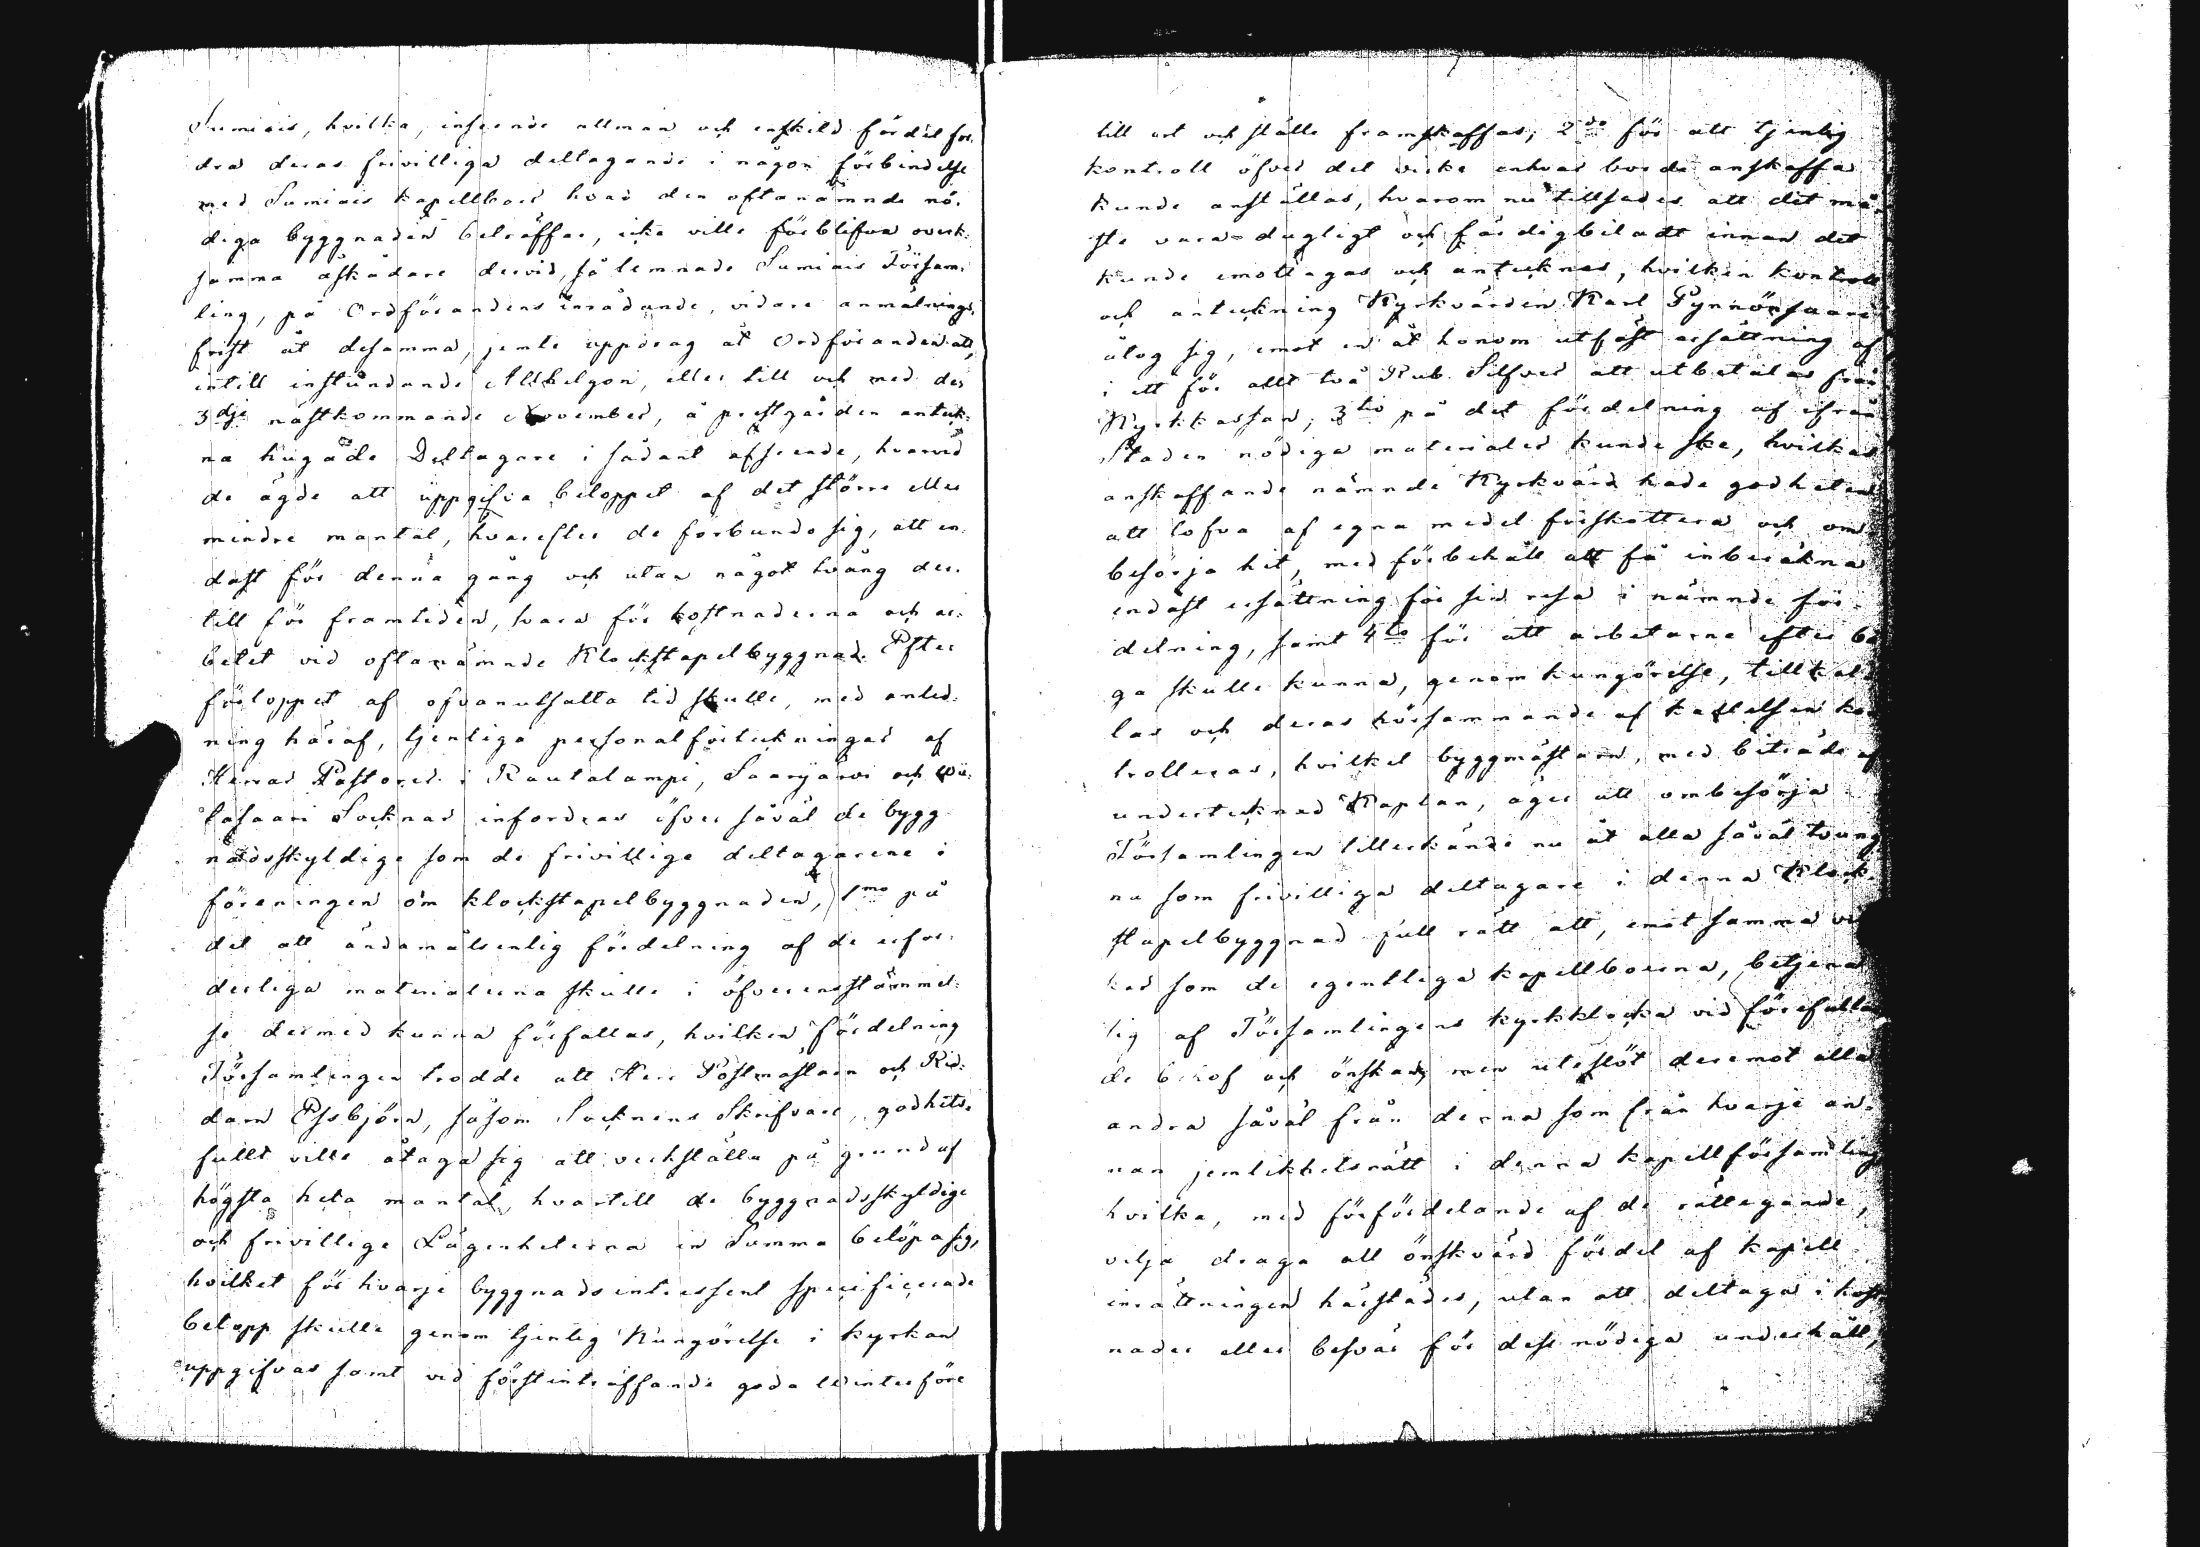 Sumiais, hvilka, inseende allmän och enskild fördel for-
dra deras frivilliga deltagande i någon förbindelse
med Sumiais kapellboer hvad den oftanämnde nö-
diga byggnaden beträffar, icke ville förblifva overk-
samma åskådare dervid, så lemnade Sumiais Försam-
ling, på Ordförandens inrådande, vidare anmälnings
frist åt desamma, jemte uppdrag åt Ordföranden att,
intill instundande Allhelgon, eller till och med den
3dje nästkommande November, å prestgården anteck-
na hugade Deltagare i sådant afseende, hvarvid
de ägde att uppgifva beloppet af det större eller
mindre mantal, hvarefter de förbundo sig, att en-
dast för denna gång och utan något tvång der-
till för framtiden, svara för kostnaderna och ar-
betet vid oftanämnde Klockstapelbyggnad. Efter
förloppet af ofvanutsatta tid skulle, med anled-
ning häraf, tjenliga personalförteckningar af
Herrar Pastorer i Rautalampi, Saarijärvi och Wii-
tasaari Socknar infordras öfver såväl de bygg
nadsskyldige som de frivillige deltagarene i
föreningen om klockstapelbyggnaden, 1mo på
det att ändamålsenlig fördelning af de erfor-
derliga materialerna skulle i öfverensstämmel-
se dermed kunna författas, hvilken fördelning
Församlingen trodde att Herr Postmästaren och Rid-
daren Essbjörn, såsom Socknens Skrifvare, godhets-
fullt ville åtaga sig att verkställa på grund af
högsta hela mantal, hvartill de byggnadsskyldige
och frivillige Lägenheterna in Summa belöpa sig,
hvilket för hvarje byggnadsintressent specificerade
belopp skulle genom tjenlig Kungörelse i kyrkan
uppgifvas samt vid förstinträffande goda Winterföre
till ort och ställe framskaffas; 2do för att tjenlig
kontroll öfver det virke enhvar borde anskaffa
kunde anställas, hvarom nu tillsades att det må-
ste vara dugligt och färdigbiladt innan det
kunde emottagas och antecknas, hvilken kontroll
och anteckning Kyrkvärden Karl Pynnönsaari
åtog sig, emot en åt honom utfäst ersättning af
i ett för allt två Rub. Silfver att utbetalas från
Kyrkkassan; 3tio på det fördelning af ifrån
Staden nödiga materialier kunde ske, hvilkas
anskaffande nämnde Kyrkvärd hade godheten
att lofva af egna medel förskottera och om
besörja hit, med förbehåll att få inberäkna
endast ersättning för sin resa i nämnde för-
delning, samt 4to för att arbetarne efter bå
ga skulle kunna, genom kungörelse, tillkal-
las och deras hörsammande af kallelsen kon
trolleras, hvilket byggmästaren, med biträde af
undertecknad Kaplan, äger att ombesörja.
Församlingen tillerkände nu åt alla såväl tvung
na som frivilliga deltagare i denna Klock-
stapelbyggnad full rätt att, emot samma vil
kor som de egentliga kapellboerna, betjena
sig af Församlingens kyrkklocka vid förefallan
de behof och önskan, men uteslöt deremot alla
andra såväl från denna som från hvarje an-
nan jemlikhetsrätt i denna kapellförsamling
hvilka, med förfördelande af de rättegande,
vilja draga all önskvärd fördel af kapell
inrättningen härstädes, utan att deltaga i kost
nader eller besvär för dess nödiga underhåll,